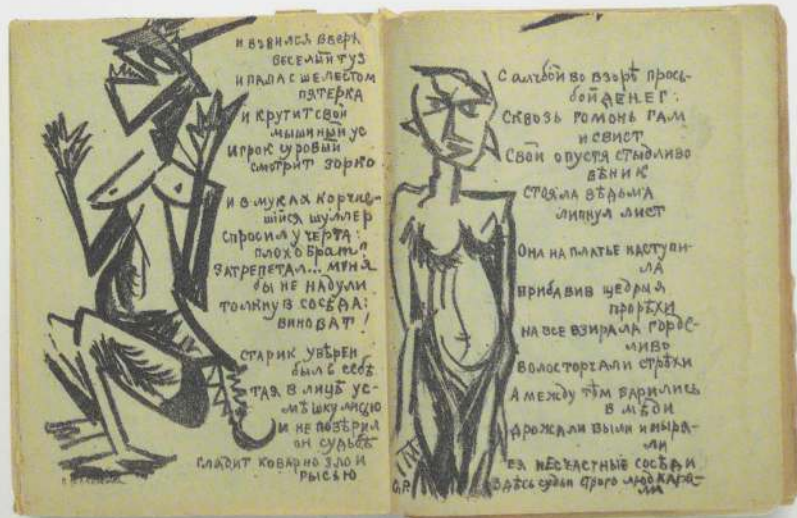 И ВЗВИЛСЯ ВВЕРХ
ВЕСЕЛЫЙ ТУЗ
И ПАЛА С ШЕЛЕСТОМ
ПЯТЕРКА
И КРУТИТ СВОЙ
МЫШИНЫЙ УС
ИГРОК СУРОВЫЙ
СМОТРИТ ЗОРКО
И В МУКАХ КОРЧИВ-
ШІЙСЯ ШУЛЛЕР
СПРОСИЛ У ЧЕРТА:
ПЛОХО БРАТ?
ЗАТРЕПЕТАЛ... МЕНЯ
БЫ НЕ НАДУЛИ
ТОЛКНУВ СОСѢДА:
ВИНОВАТ!
СТАРИК УВѢРЕН
БЫЛ В СЕБѢ
ТАЯ В ЛИЦѢ УС-
МѢШКУ ЛИСЮ
И НЕ ПОВѢРИЛ
ОН СУДЬБѢ
ГЛЯДИТ КОВАРНО ЗЛО И
РЫСЬЮ
С АЛЧБОЙ ВО ВЗОРѢ ПРОСЬ-
БОЙ ДЕНЕГ:
СКВОЗЬ ГОМОНЬ ГАМ
И СВИСТ
СВОЙ ОПУСТЯ СТЫДЛИВО
ВѢНИК
СТОЯЛА ВѢДЬМА
ЛИПНУЛ ЛИСТ
ОНА НА ПЛАТЬЕ НАСТУПИ-
ЛА
ПРИБАВИВ ЩЕДРЫЯ
ПРОРѢХИ
НА ВСЕ ВЗИРАЛА ГОРДЕ-
ЛИВО
ВОЛОС ТОРЧАЛИ СТРѢХИ
А МЕЖДУ ТѢМ ВАРИЛИСЬ
В МѢДИ
ДРОЖАЛИ ВЫЛИ И НЫРЯ-
ЛИ
ЕЯ НЕСЧАСТНЫЕ СОСѢДИ
ЗДѢСЬ СУДЬИ СТРОГО ЛЮД КАРА-
ЛИ
О.Р.